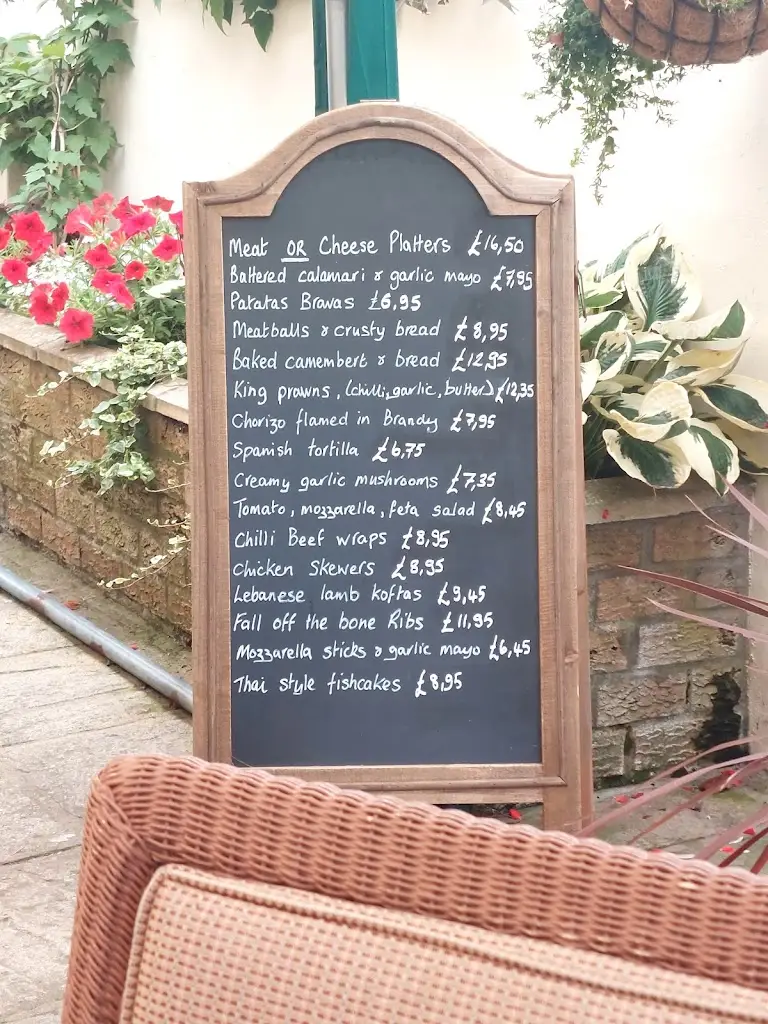 Meat OR Cheese Platters £16,50
Battered calamari & garlic mayo £7,95
Patatas Bravas £6,95
Meatballs & crusty bread £8,95
Baked camembert & bread £12,95
King prawns, (chilli, garlic, butter) £12,35
Chorizo flamed in Brandy £7,95
Spanish tortilla £6,75
Creamy garlic mushrooms £7,35
Tomato, mozzarella, feta salad £8,45
Chilli Beef wraps £8,95
Chicken Skewers £8,95
Lebanese lamb koftas £9,45
Fall off the bone Ribs £11,95
Mozzarella sticks & garlic mayo £6,45
Thai style fishcakes £8,95